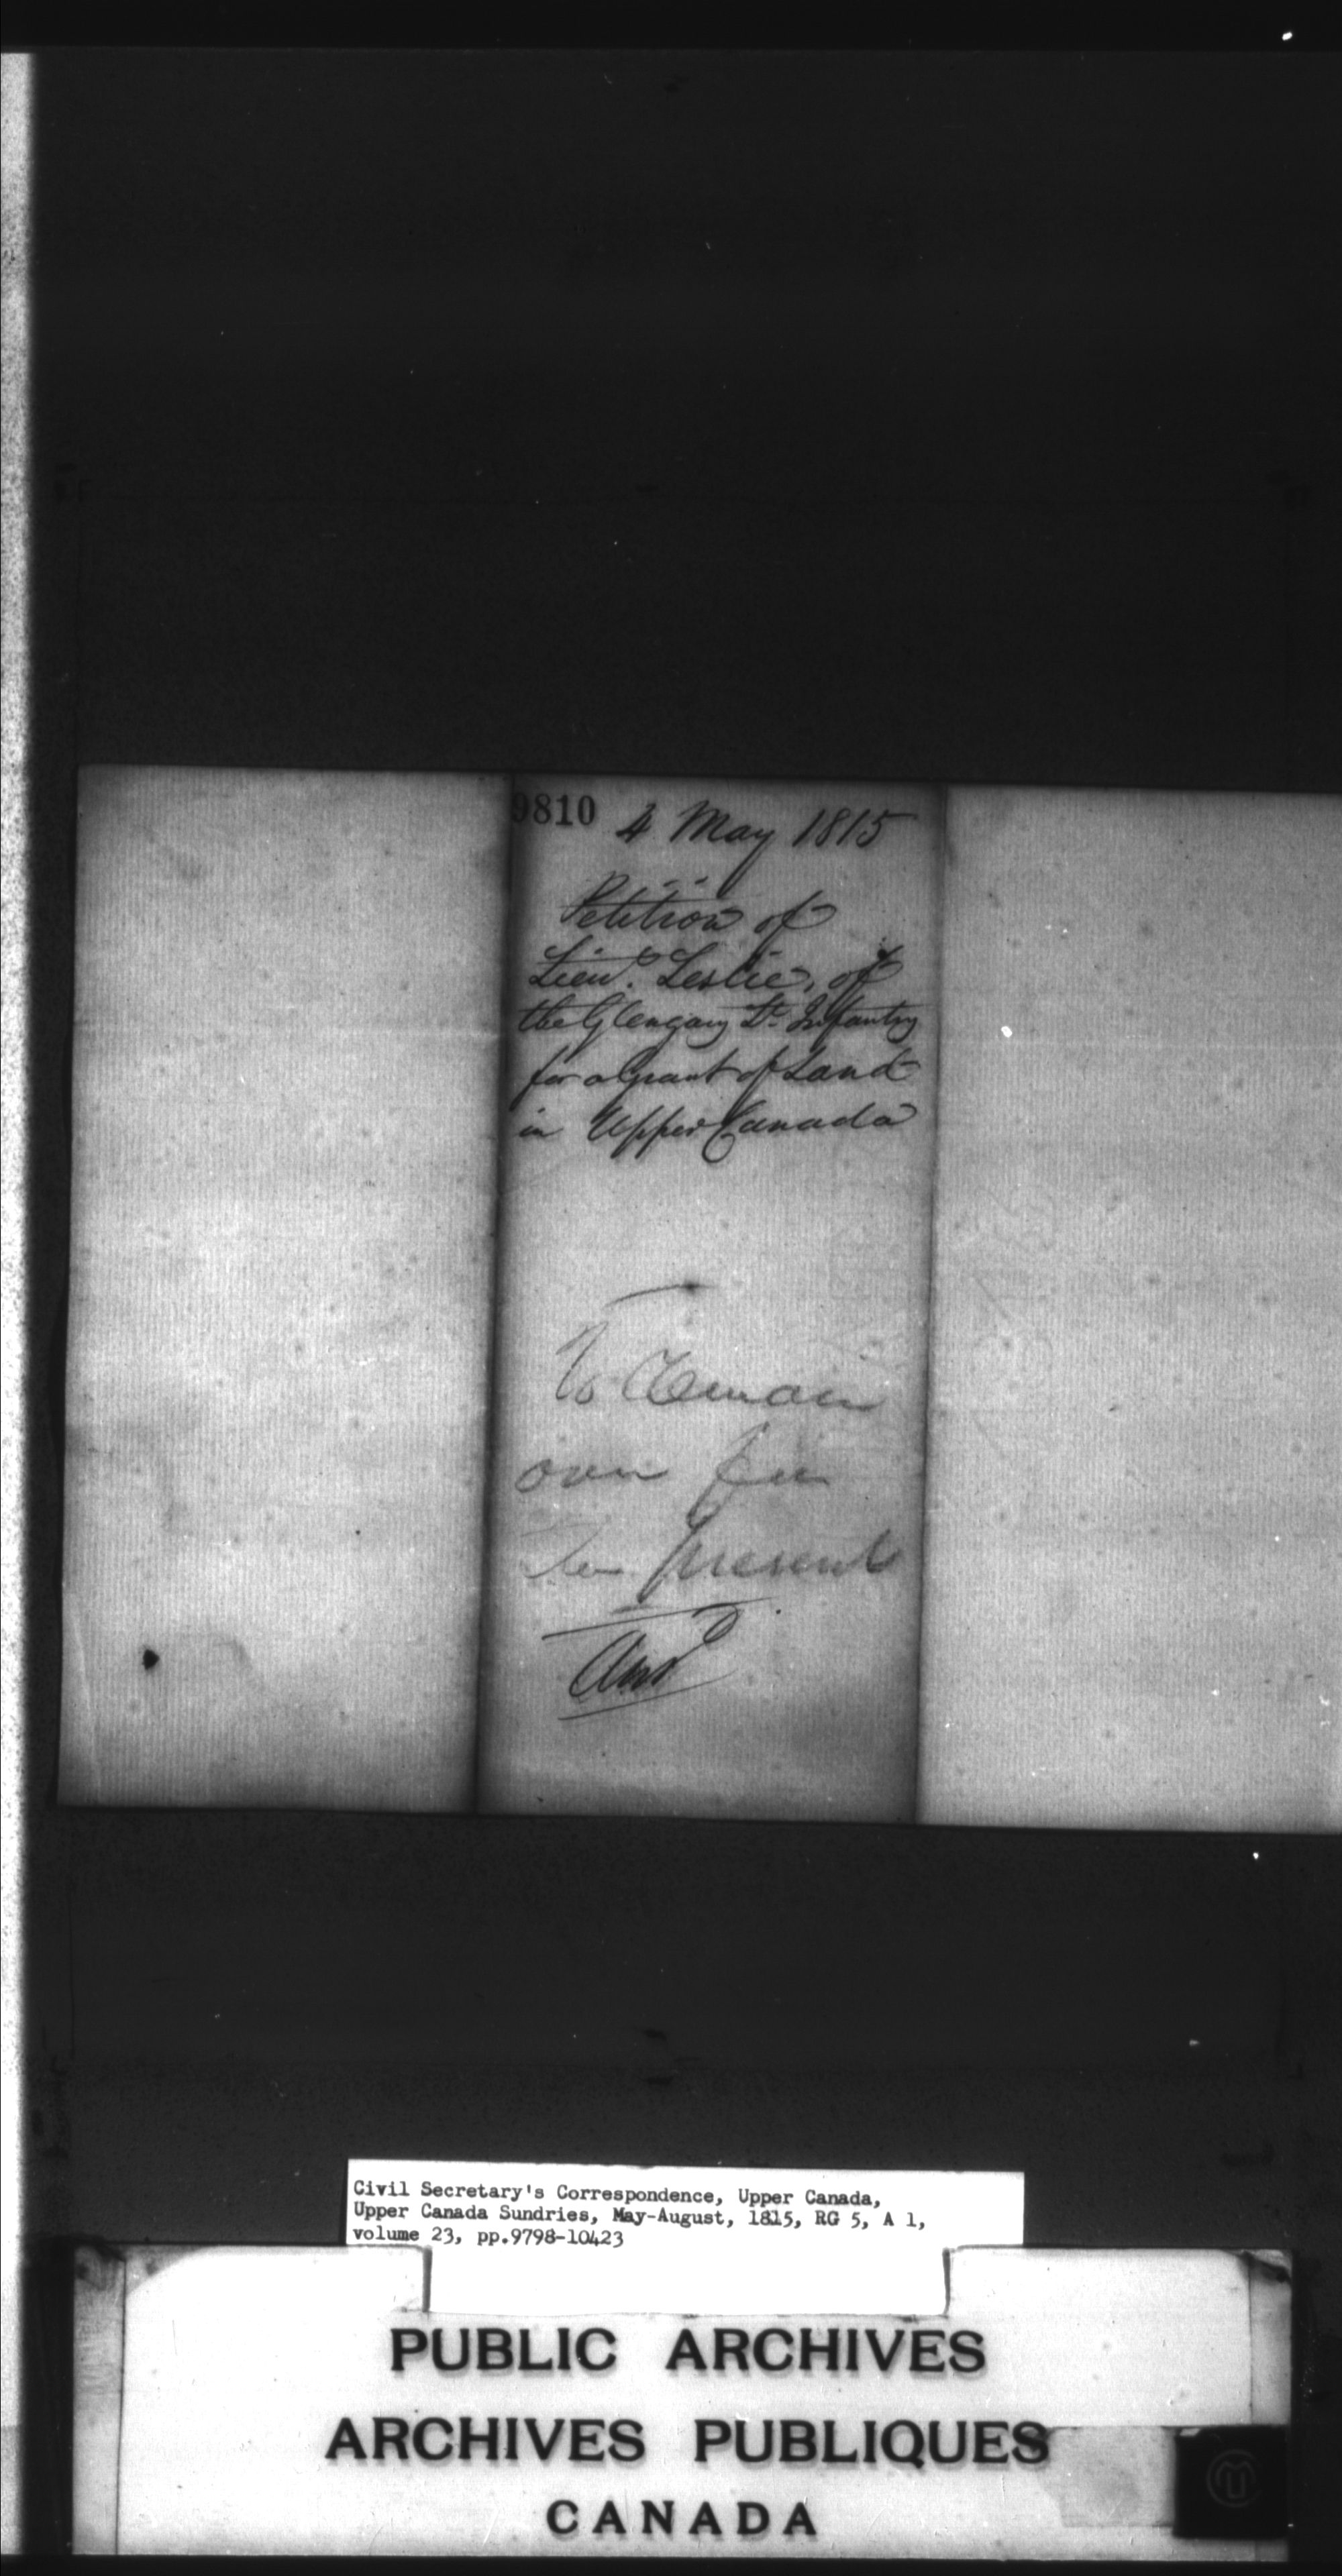 9810
4 May 1815
Petition of
Lieut. Leslie, of
the Glengary Lt. Infantry
for a Grant of Land
in Upper Canada
To Remain
over for
the present
Civil Secretary's Correspondence, Upper Canada,
Upper Canada Sundries, May-August, 1815, RG 5, A 1,
volume 23, pp.9798-10423
PUBLIC ARCHIVES
ARCHIVES PUBLIQUES
CANADA